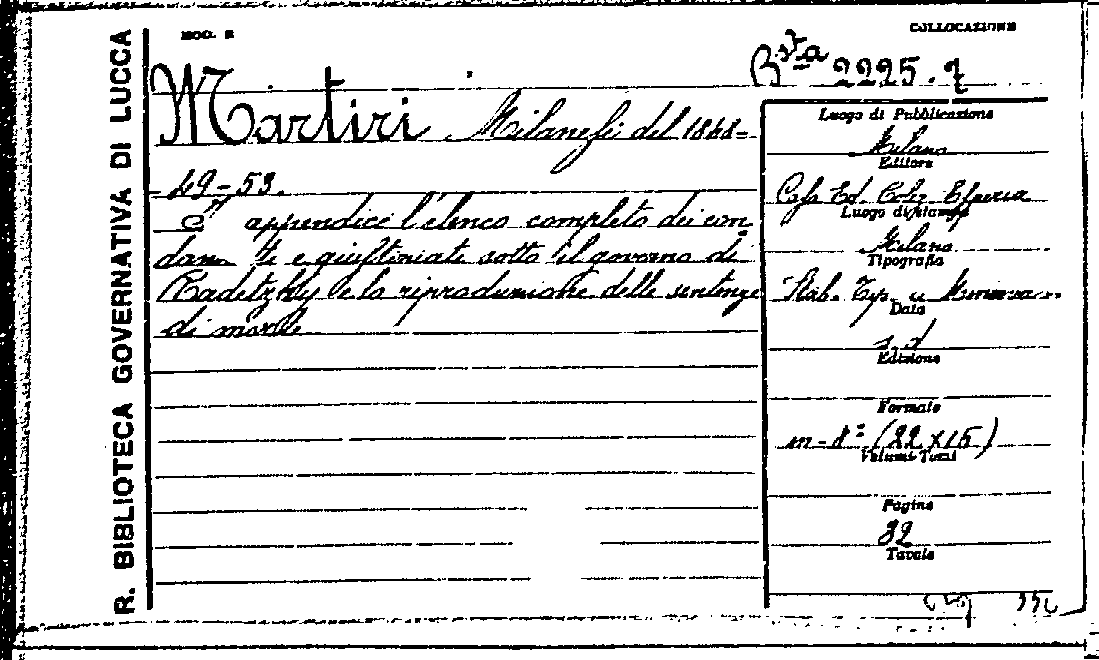 R. BIBLIOTECA GOVERNATIVA DI LUCCA
MOD. E
COLLOCAZIONE
Bsta 2225.7
Martiri Milanesi del 1848-
49-53.
È appendice l'elenco completo dei con
dan ti e giustiziati sotto il governo di
Radetzky e la riproduzione delle sentenze
di morte
Luogo di Pubblicazione
Milano
Editore
Casa Ed. Esperia
Luogo di stampa
Milano
Tipografia
Stab. Tip. Minerva
Data
s. d
Edizione
Formato
in-8º (22 X 15)
Volumi Totali
Pagine
32
Tavole